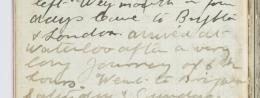 left Weymouth in four
days leave to Brighton
& London. arrived at
Waterloo after a very
long journey of 6
hours. Went to
Saturday & Sunday